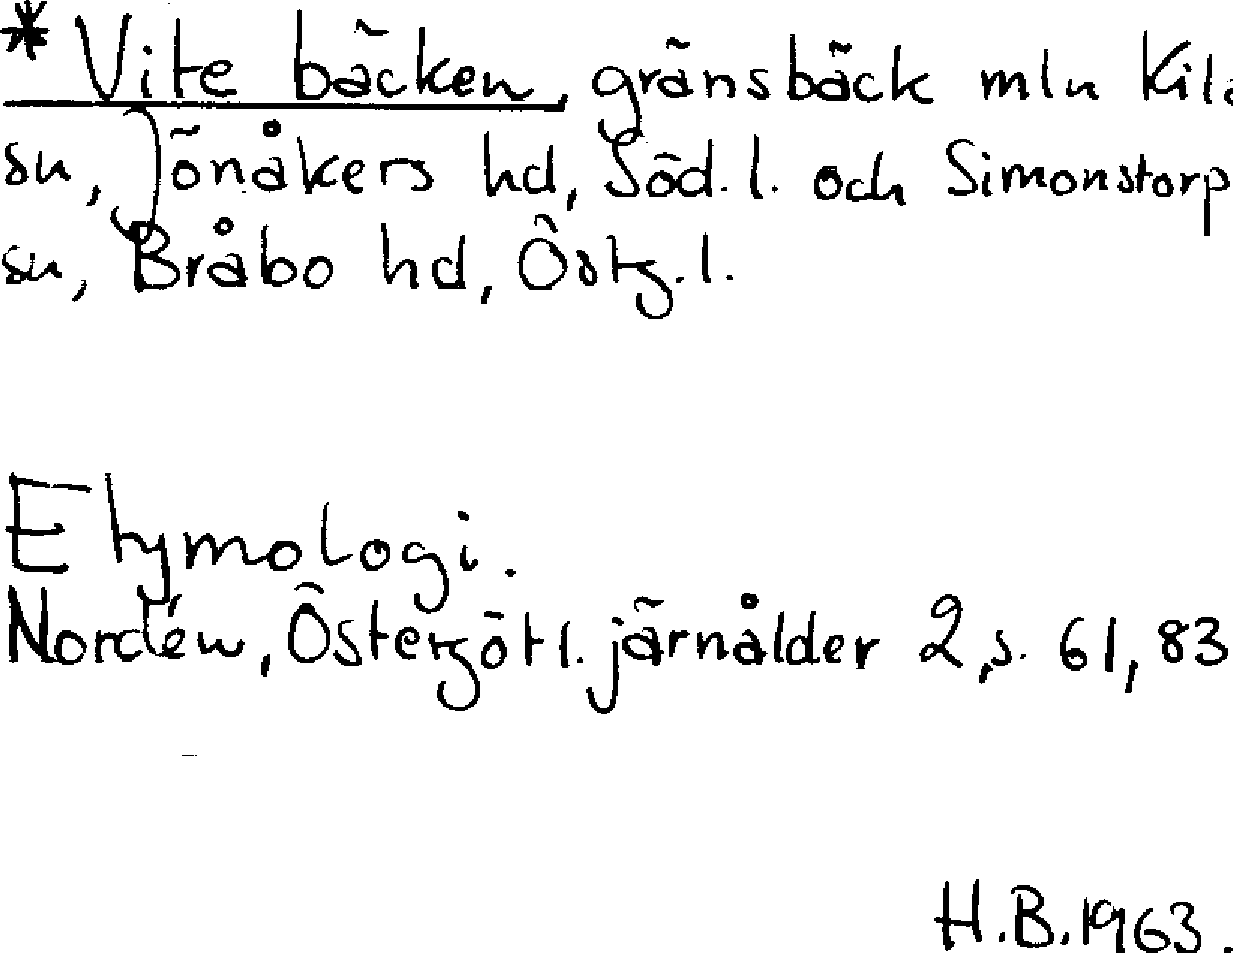 * Vite bäcken, gränsbäck mln Kila
sn, Jönåkers hd, Söd. l. och Simonstorp
sn, Bråbo hd, Östg. l.
Etymologi.
Nordén, Östergötl. järnålder 2, s. 61, 83
H.B. 1963.